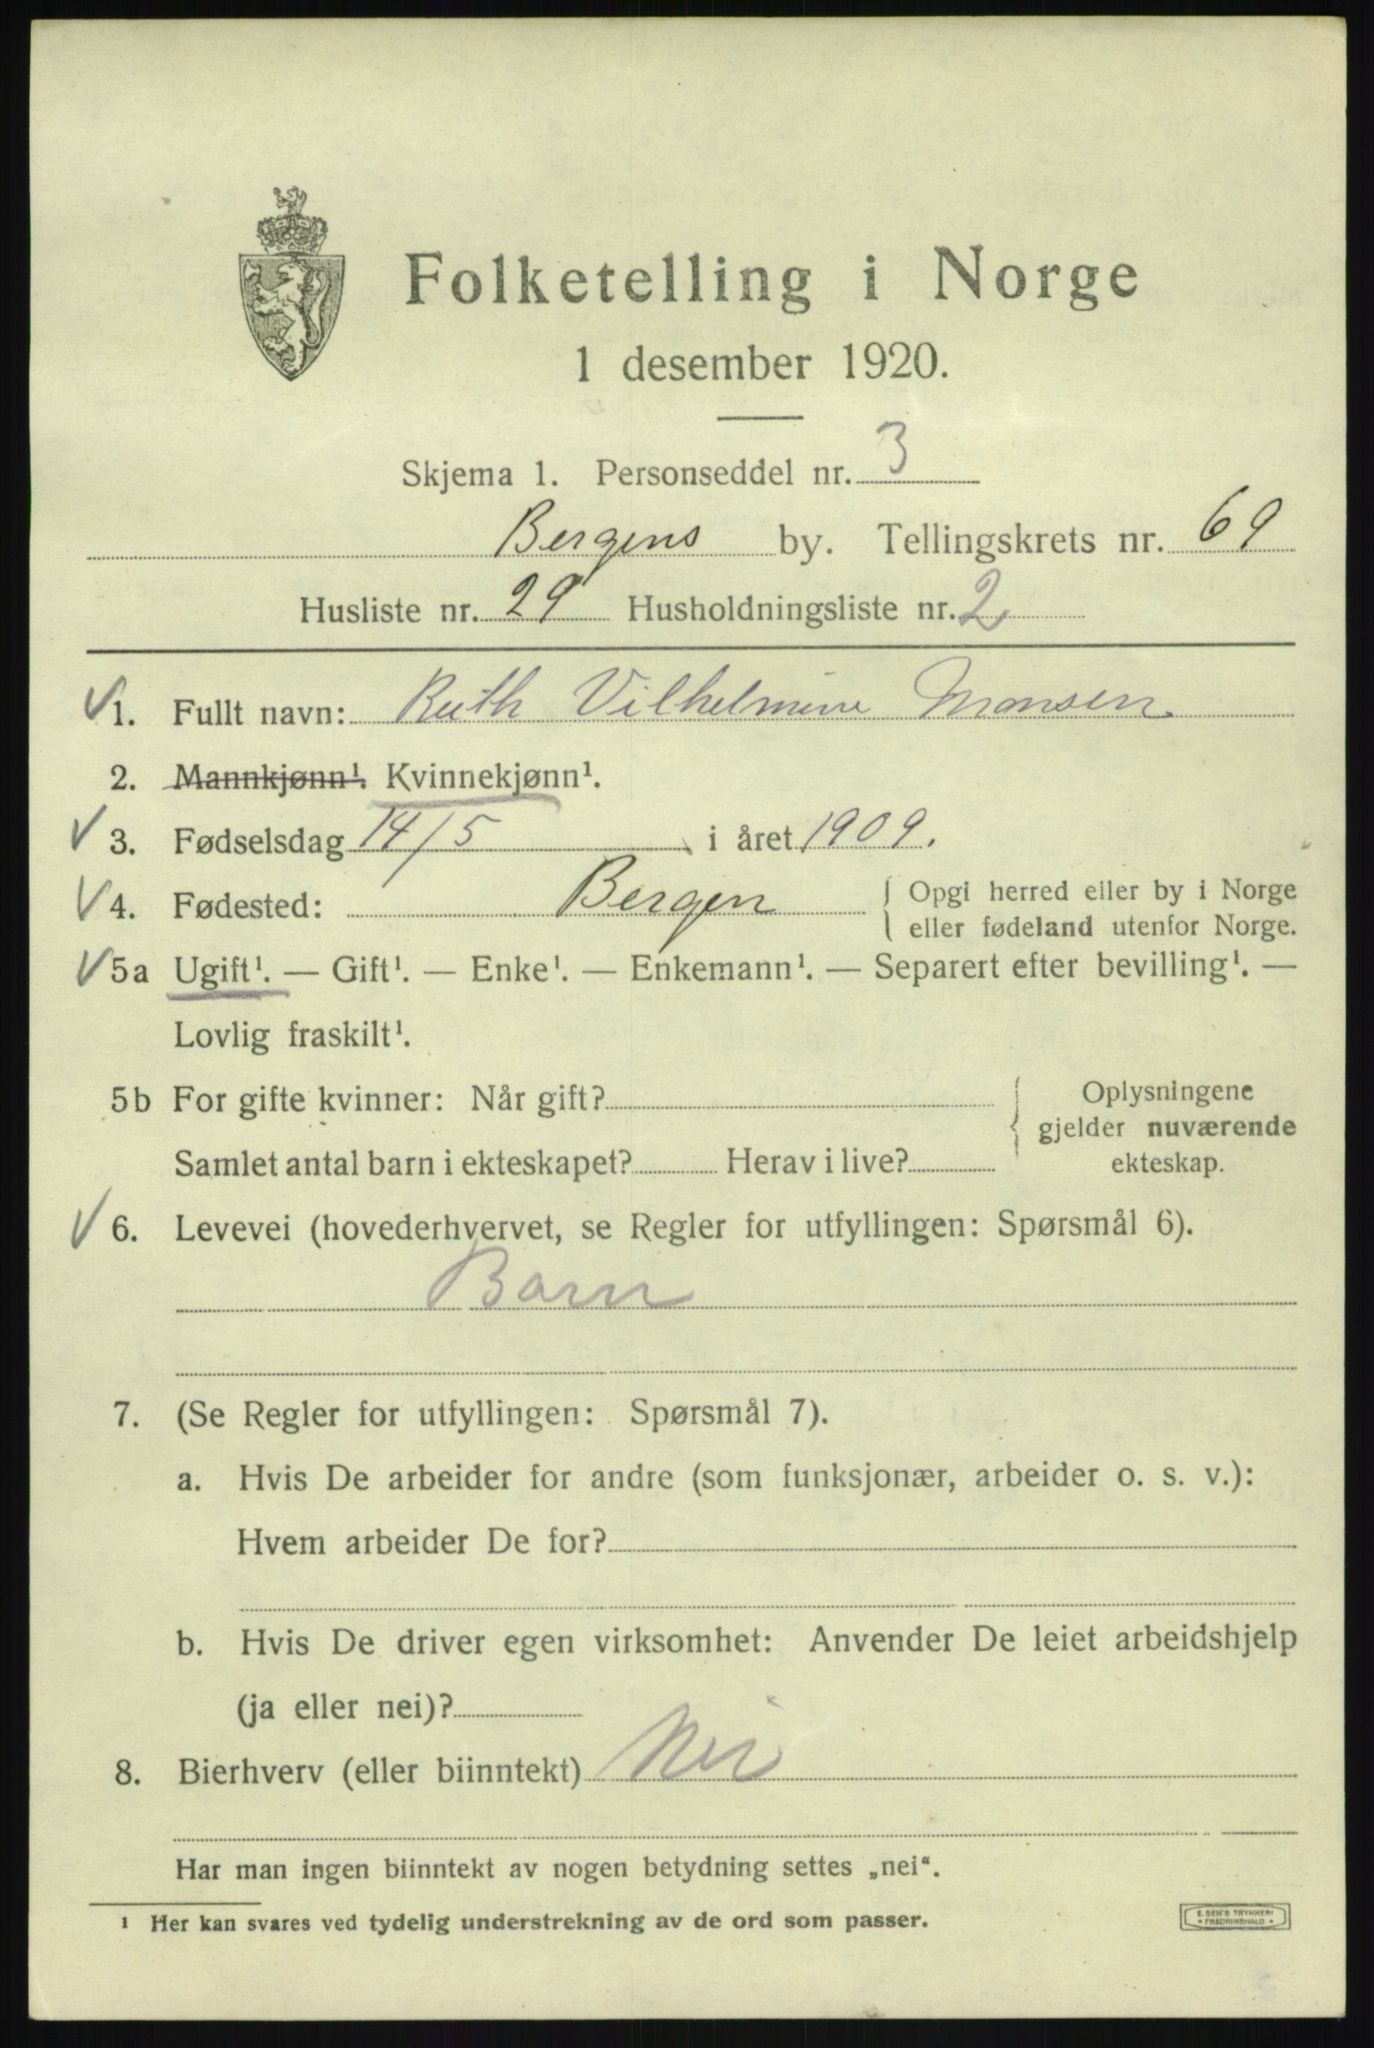 Folketelling i Norge
1 desember 1920.
Skjema 1. Personseddel nr. 3
Bergens by. Tellingskrets nr. 69
Husliste nr. 29 Husholdningsliste nr. 2
1. Fullt navn: Ruth Vilhelmine Monsen
2. Mannkjønn¹. Kvinnekjønn¹.
3. Fødselsdag 14/5 i året 1909.
4. Fødested: Bergen { Opgi herred eller by i Norge
eller fødeland utenfor Norge.
5a Ugift¹. — Gift¹. — Enke¹. — Enkemann¹. — Separert efter bevilling¹. —
Lovlig fraskilt¹.
5b For gifte kvinner: Når gift? { Oplysningene
gjelder nuværende
Samlet antal barn i ekteskapet? Herav i live? ekteskap.
6. Levevei (hovederhvervet, se Regler for utfyllingen: Spørsmål 6).
Barn
7. (Se Regler for utfyllingen: Spørsmål 7).
a. Hvis De arbeider for andre (som funksjonær, arbeider o. s. v.):
Hvem arbeider De for?
b. Hvis De driver egen virksomhet: Anvender De leiet arbeidshjelp
(ja eller nei)?
8. Bierhverv (eller biinntekt) Nei
Har man ingen biinntekt av nogen betydning settes „nei“.
¹ Her kan svares ved tydelig understrekning av de ord som passer.
E. SEM'S TRYKKERI
FREDRIKSHALD